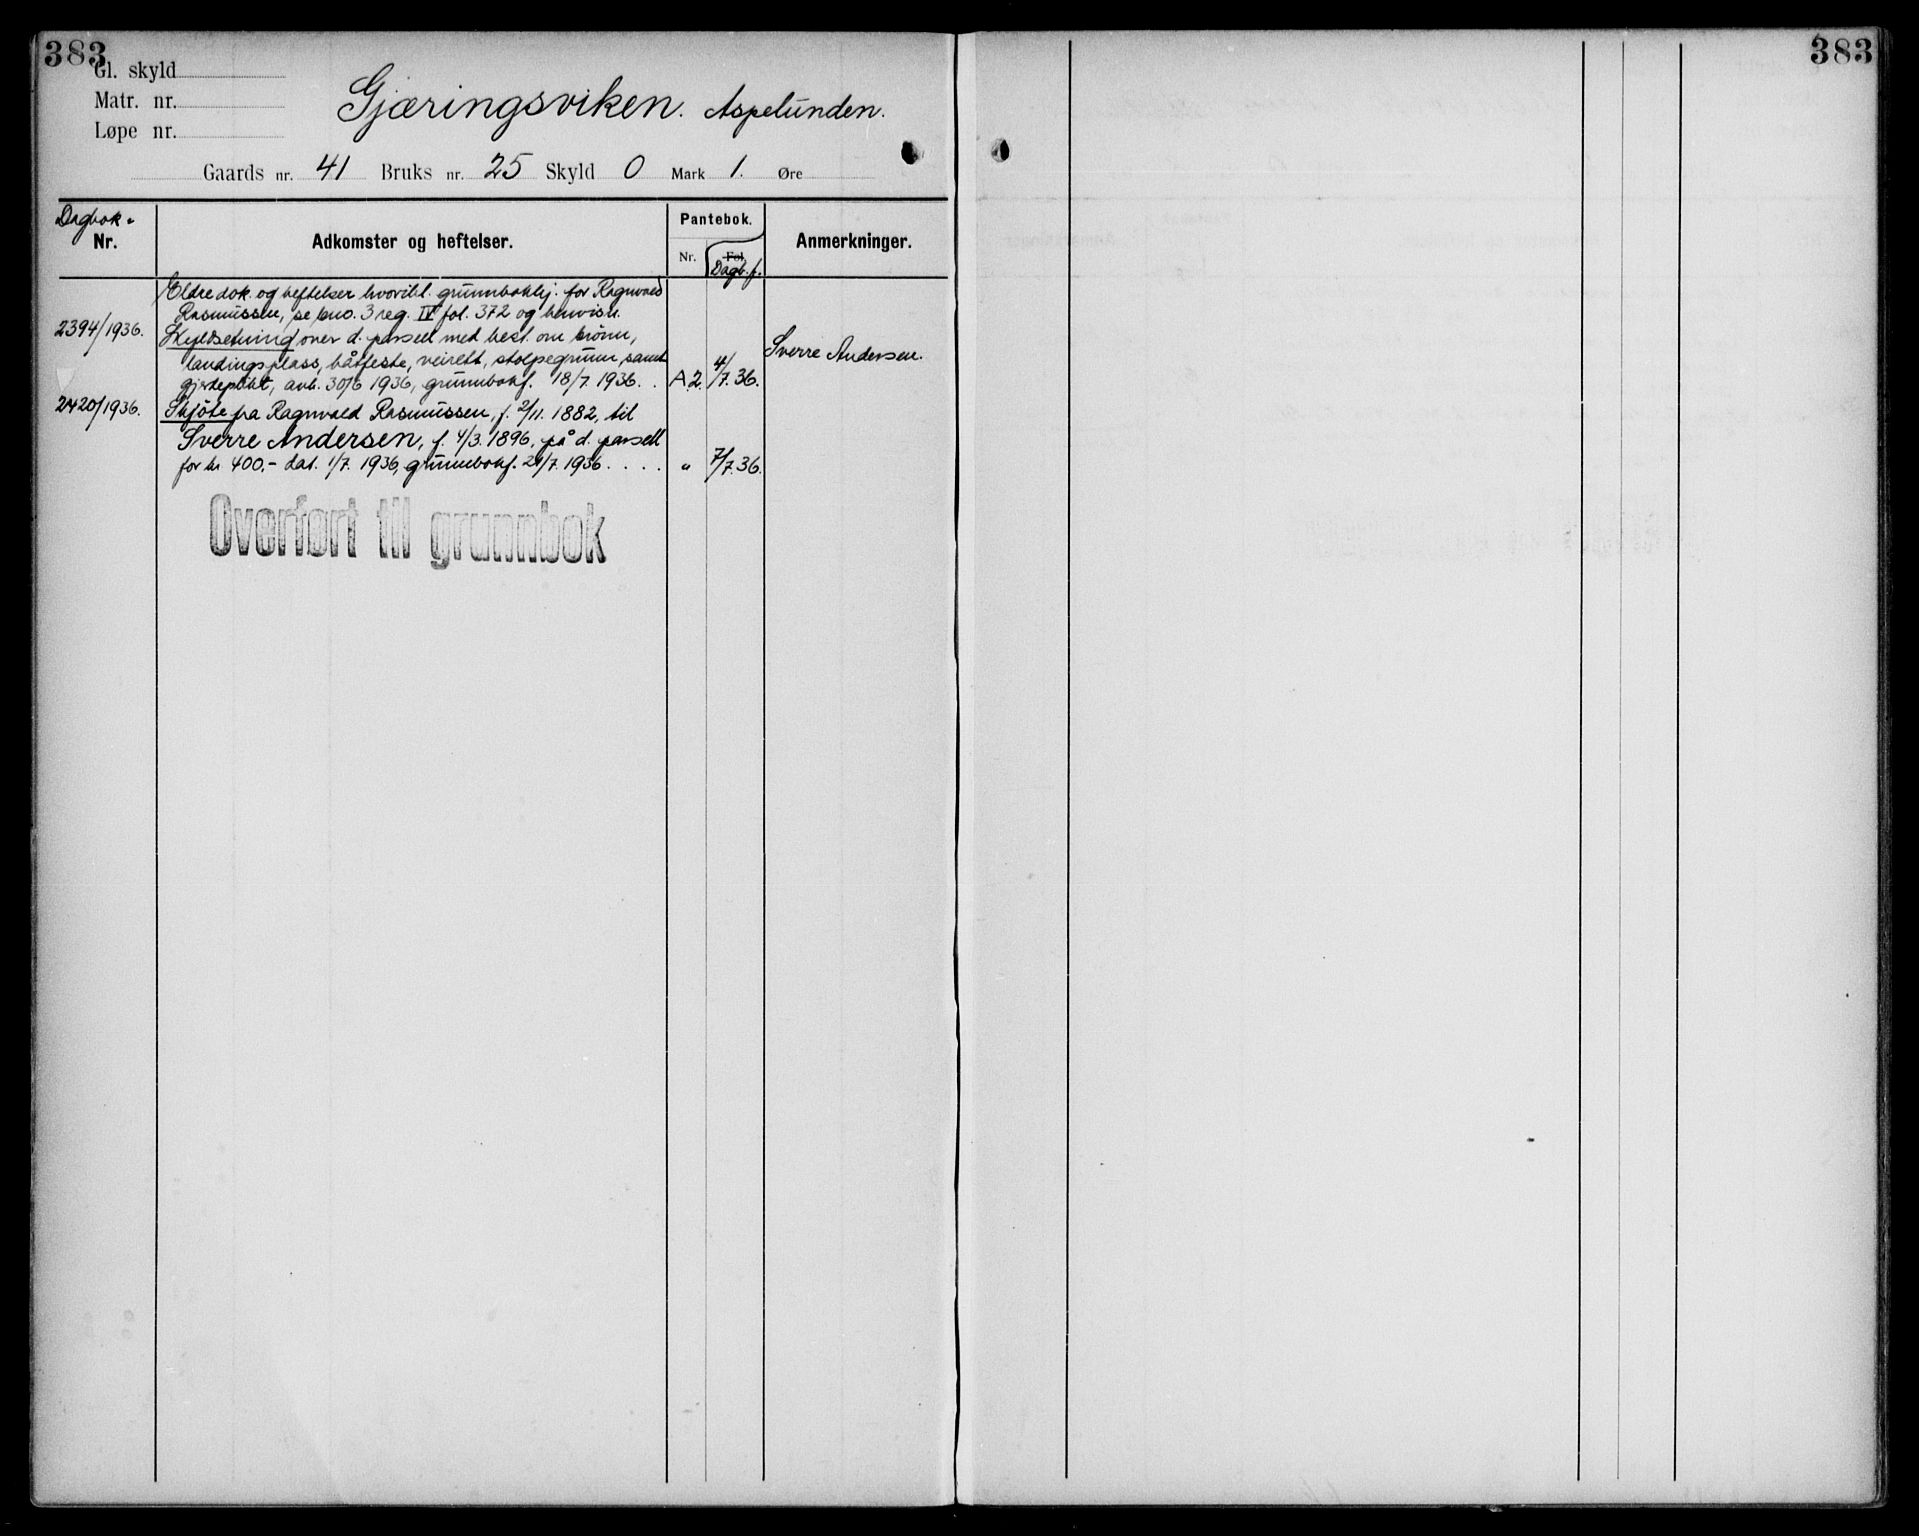 383
383
Gl. skyld
Matr. nr.
Løpe nr.
Gjæringsviken. Aspelunden.
Gaards nr. 41 Bruks nr. 25 Skyld 0 Mark 1. Øre
Dagbok-
Nr.
Adkomster og heftelser.
Pantebok.
Nr.
Fol.
Dagb. f.
Anmerkninger.
Eldre dok. og heftelser hvoribl. grunnbokhj. for Ragnvald
Rasmussen, se bno. 3 reg. IV fol. 372 og henvisn.
2394/1936. Skyldsetning over d. parsell med best. om brønn,
landingsplass, båtfeste, veirett, stolpegrunn, samt
Sverre Andersen.
gjerdeplikt, avh. 30/6 1936, grunnbokf. 18/7. 1936. . A 2. 4/7. 36.
2420/1936. Skjøte fra Ragnvald Rasmussen, f. 2/11. 1882, til
Sverre Andersen, f. 4/3. 1896, på d. parsell
for kr 400.- dat. 1/7. 1936, grunnbokf. 21/7. 1936. . . . " 7/7. 36.
Overført til grunnbok